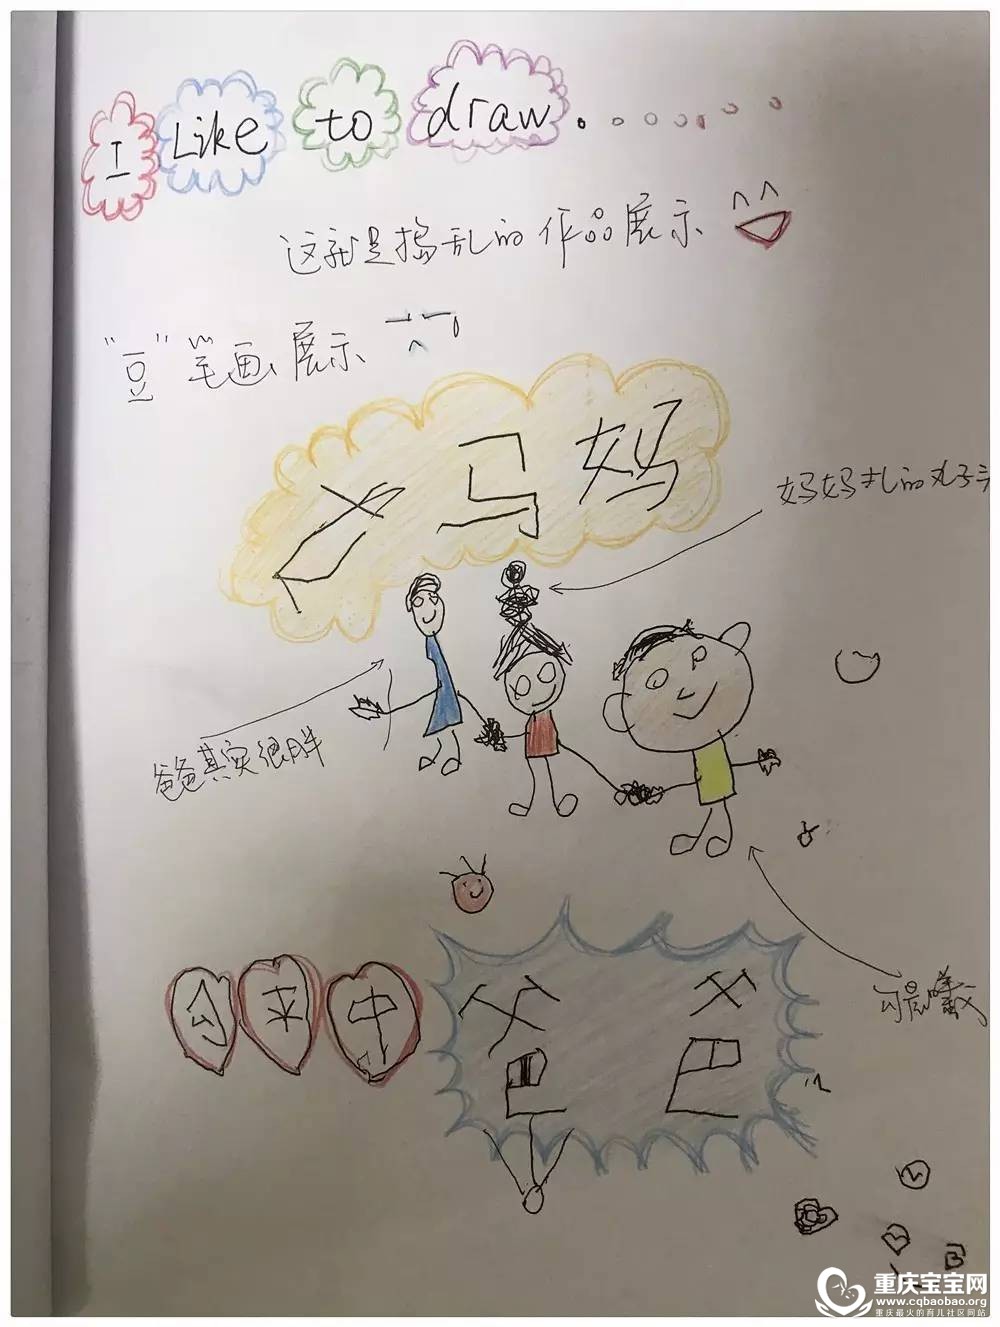 I Like to draw.
这就是捣乱的作品展示
"豆"笔画展示
妈妈
妈妈扎的丸子头
爸爸其实很胖
勾晨曦
勾来中
爸爸
重庆宝宝网
www.cqbaobao.org
重庆最火的育儿社区网站